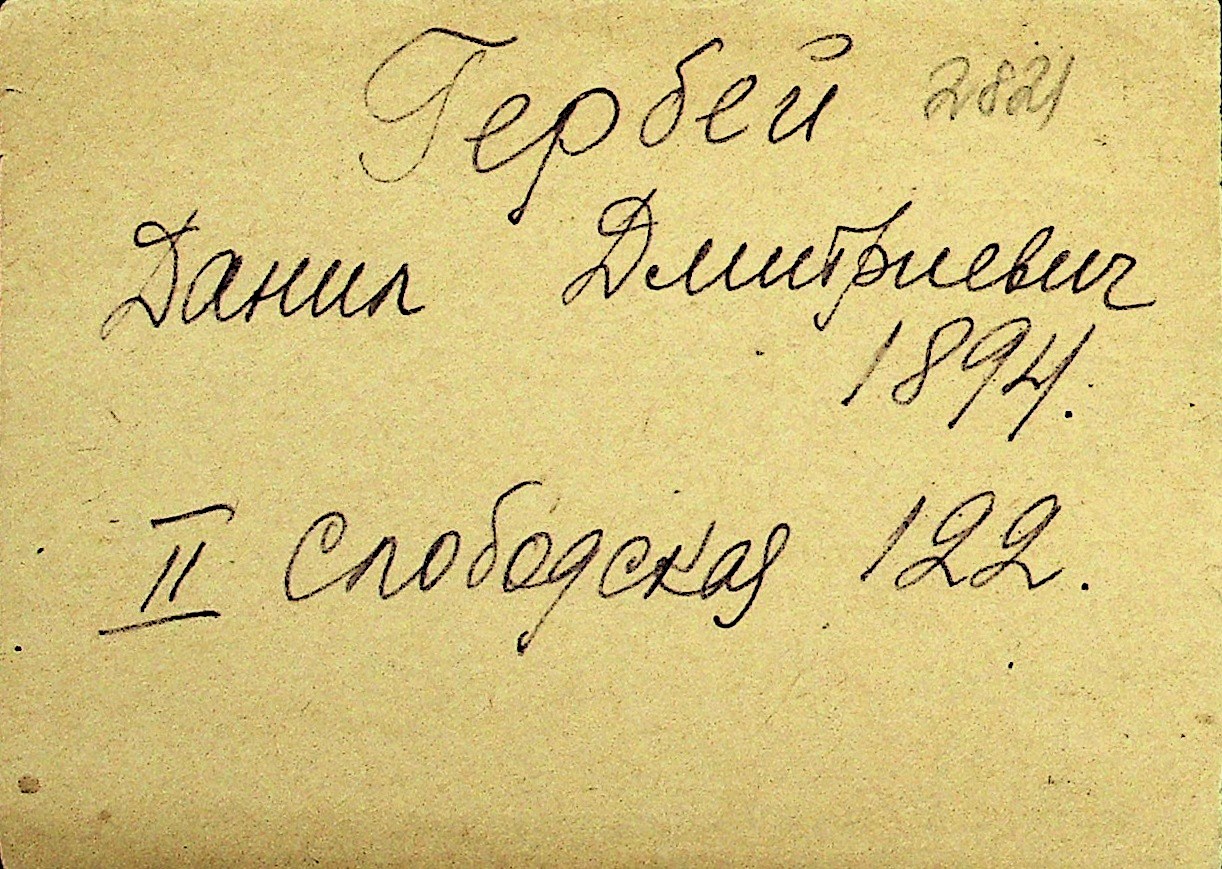 Гербей 2821
Данил Дмитриевич
1894.
II Слободская 122.